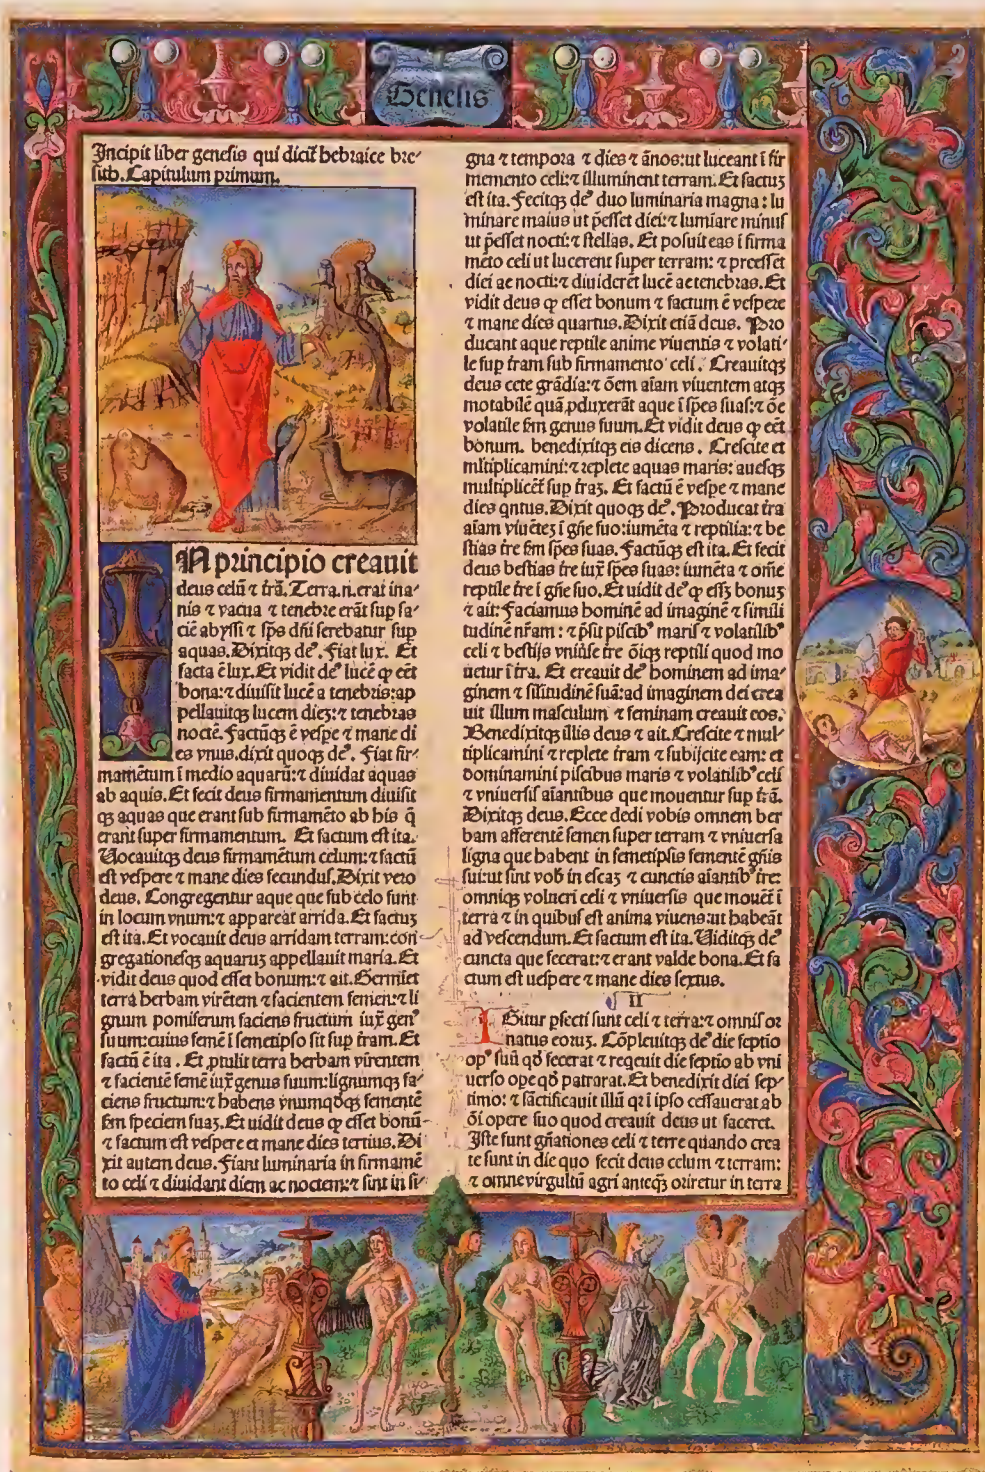 Genesis
Incipit liber genesis qui dicit̃ hebraice bre⸗
sith. Capitulum primum.
IN principio creauit
deus celũ ⁊ trã. Terra.n.erat ina⸗
nis ⁊ vacua ⁊ tenebre erãt sup fa⸗
ciẽ abyssi ⁊ sp̃s dñi ferebatur sup
aquas. Dixitqꝫ deꝰ. Fiat lux. Et
facta ẽ lux. Et vidit deꝰ lucẽ ꝙ eẽt
bona:⁊ diuisit lucẽ a tenebris:ap
pellauitqꝫ lucem dieꝫ:⁊ tenebras
noctẽ. Factũqꝫ ẽ vespe ⁊ mane di
es vnus. dixit quoqꝫ deꝰ. Fiat fir⸗
mamẽtum ĩ medio aquarũ:⁊ diuidat aquas
ab aquis. Et fecit deus firmamentum diuisit
qꝫ aquas que erant sub firmamẽto ab his q̃
erant super firmamentum. Et factum est ita.
Vocauitqꝫ deus firmamẽtum celum:⁊ factũ
est vespere ⁊ mane dies secundus. Dixit vero
deus. Congregentur aque que sub celo sunt
in locum vnum:⁊ appareat arrida. Et factuꝫ
est ita. Et vocauit deus arridam terram:con
gregationesqꝫ aquaruꝫ appellauit maria. Et
vidit deus quod esset bonum:⁊ ait. Germiet
terra herbam virẽtem ⁊ facientem semen:⁊ li
gnum pomiferum faciens fructum iux̃ genꝰ
suum:cuius semẽ ĩ semetipso sit sup tram. Et
factũ ẽ ita. Et ꝓtulit terra herbam virentem
⁊ facientẽ semẽ iux̃ genus suum:lignumqꝫ fa⸗
ciens fructum:⁊ habens vnumqđqꝫ sementẽ
s̃m speciem suaꝫ. Et uidit deus ꝙ esset bonũ⸗
⁊ factum est vespere et mane dies tertius. Di
xit autem deus. Fiant luminaria in firmamẽ
to celi ⁊ diuidant diem ac noctem:⁊ sint in si⸗
gna ⁊ tempora ⁊ dies ⁊ ãnos:ut luceant ĩ fir
memento celi:⁊ illuminent terram. Et factuꝫ
est ita. Fecitqꝫ deꝰ duo luminaria magna: lu
minare maius ut p̃esset diei:⁊ lumĩare minus
ut p̃esset nocti:⁊ stellas. Et posuit eas ĩ firma
mẽto celi ut lucerent super terram: ⁊ preesset
diei ac nocti:⁊ diuiderẽt lucẽ ac tenebras. Et
vidit deus ꝙ esset bonum ⁊ factum ẽ vespere
⁊ mane dies quartus. Dixit etiã deus. Pro
ducant aque reptile anime viuentis ⁊ volati⸗
le sup tram sub firmamento celi. Creauitqꝫ
deus cete grãdia:⁊ õem aĩam viuentem atqꝫ
motabilẽ quã ꝓduxerãt aque ĩ sp̃es suas:⁊ õe
volatile s̃m genus suum. Et vidit deus ꝙ eẽt
bonum. benedixitqꝫ eis dicens. Crescite et
mltiplicamini:⁊ replete aquas maris: auesqꝫ
multiplicẽt sup traꝫ. Et factũ ẽ vespe ⁊ mane
dies qntus. Dixit quoqꝫ deꝰ. Producat tra
aĩam viuẽteꝫ ĩ gñe suo:iumẽta ⁊ reptilia:⁊ be
stias tre s̃m sp̃es suas. Factũqꝫ est ita. Et fecit
deus bestias tre iux̃ sp̃es suas: iumẽta ⁊ om̃e
reptile tre ĩ gñe suo. Et uidit deꝰ ꝙ essꝫ bonuꝫ
⁊ ait: Faciamus hominẽ ad imaginẽ ⁊ simili
tudinẽ nr̃am: ⁊ p̃sit piscibꝰ maris ⁊ volatilibꝰ
celi ⁊ bestijs vniũse tre õiqꝫ reptili quod mo
uetur ĩ tra. Et creauit deꝰ hominem ad ima⸗
ginem ⁊ sĩlitudinẽ suã:ad imaginem dei crea
uit illum masculum ⁊ feminam creauit eos.
Benedixitqꝫ illis deus ⁊ ait. Crescite ⁊ mul⸗
tiplicamini ⁊ replete tram ⁊ subijcite eam: et
dominamini piscibus maris ⁊ volatilibꝰ celi
⁊ vniuersis aĩantibus que mouentur sup trã.
Dixitqꝫ deus. Ecce dedi vobis omnem her
bam afferentẽ semen super terram ⁊ vniuersa
ligna que habent in semetipsis sementẽ gñis
sui:ut sint vob̃ in escaꝫ ⁊ cunctis aĩantibꝰ tre:
omniqꝫ volucri celi ⁊ vniuersis que mouẽt ĩ
terra ⁊ in quibus est anima viuens:ut habeãt
ad vescendum. Et factum est ita. Viditqꝫ deꝰ
cuncta que fecerat:⁊ erant valde bona. Et fa
ctum est uespere ⁊ mane dies sextus.
II
IGitur ꝑfecti sunt celi ⁊ terra:⁊ omnis or
natus eoruꝫ. Cõpleuitqꝫ deꝰ die septio
opꝰ suũ qđ fecerat ⁊ reqeuit die septio ab vni
uerso ope qđ patrarat. Et benedixit diei sep⸗
timo: ⁊ sãctificauit illũ qꝛ ĩ ipso cessauerat ab
õi opere suo quod creauit deus ut faceret.
Iste sunt gñationes celi ⁊ terre quando crea
te sunt in die quo fecit deus celum ⁊ terram:
⁊ omne virgultũ agri anteqꝫ oriretur in terra